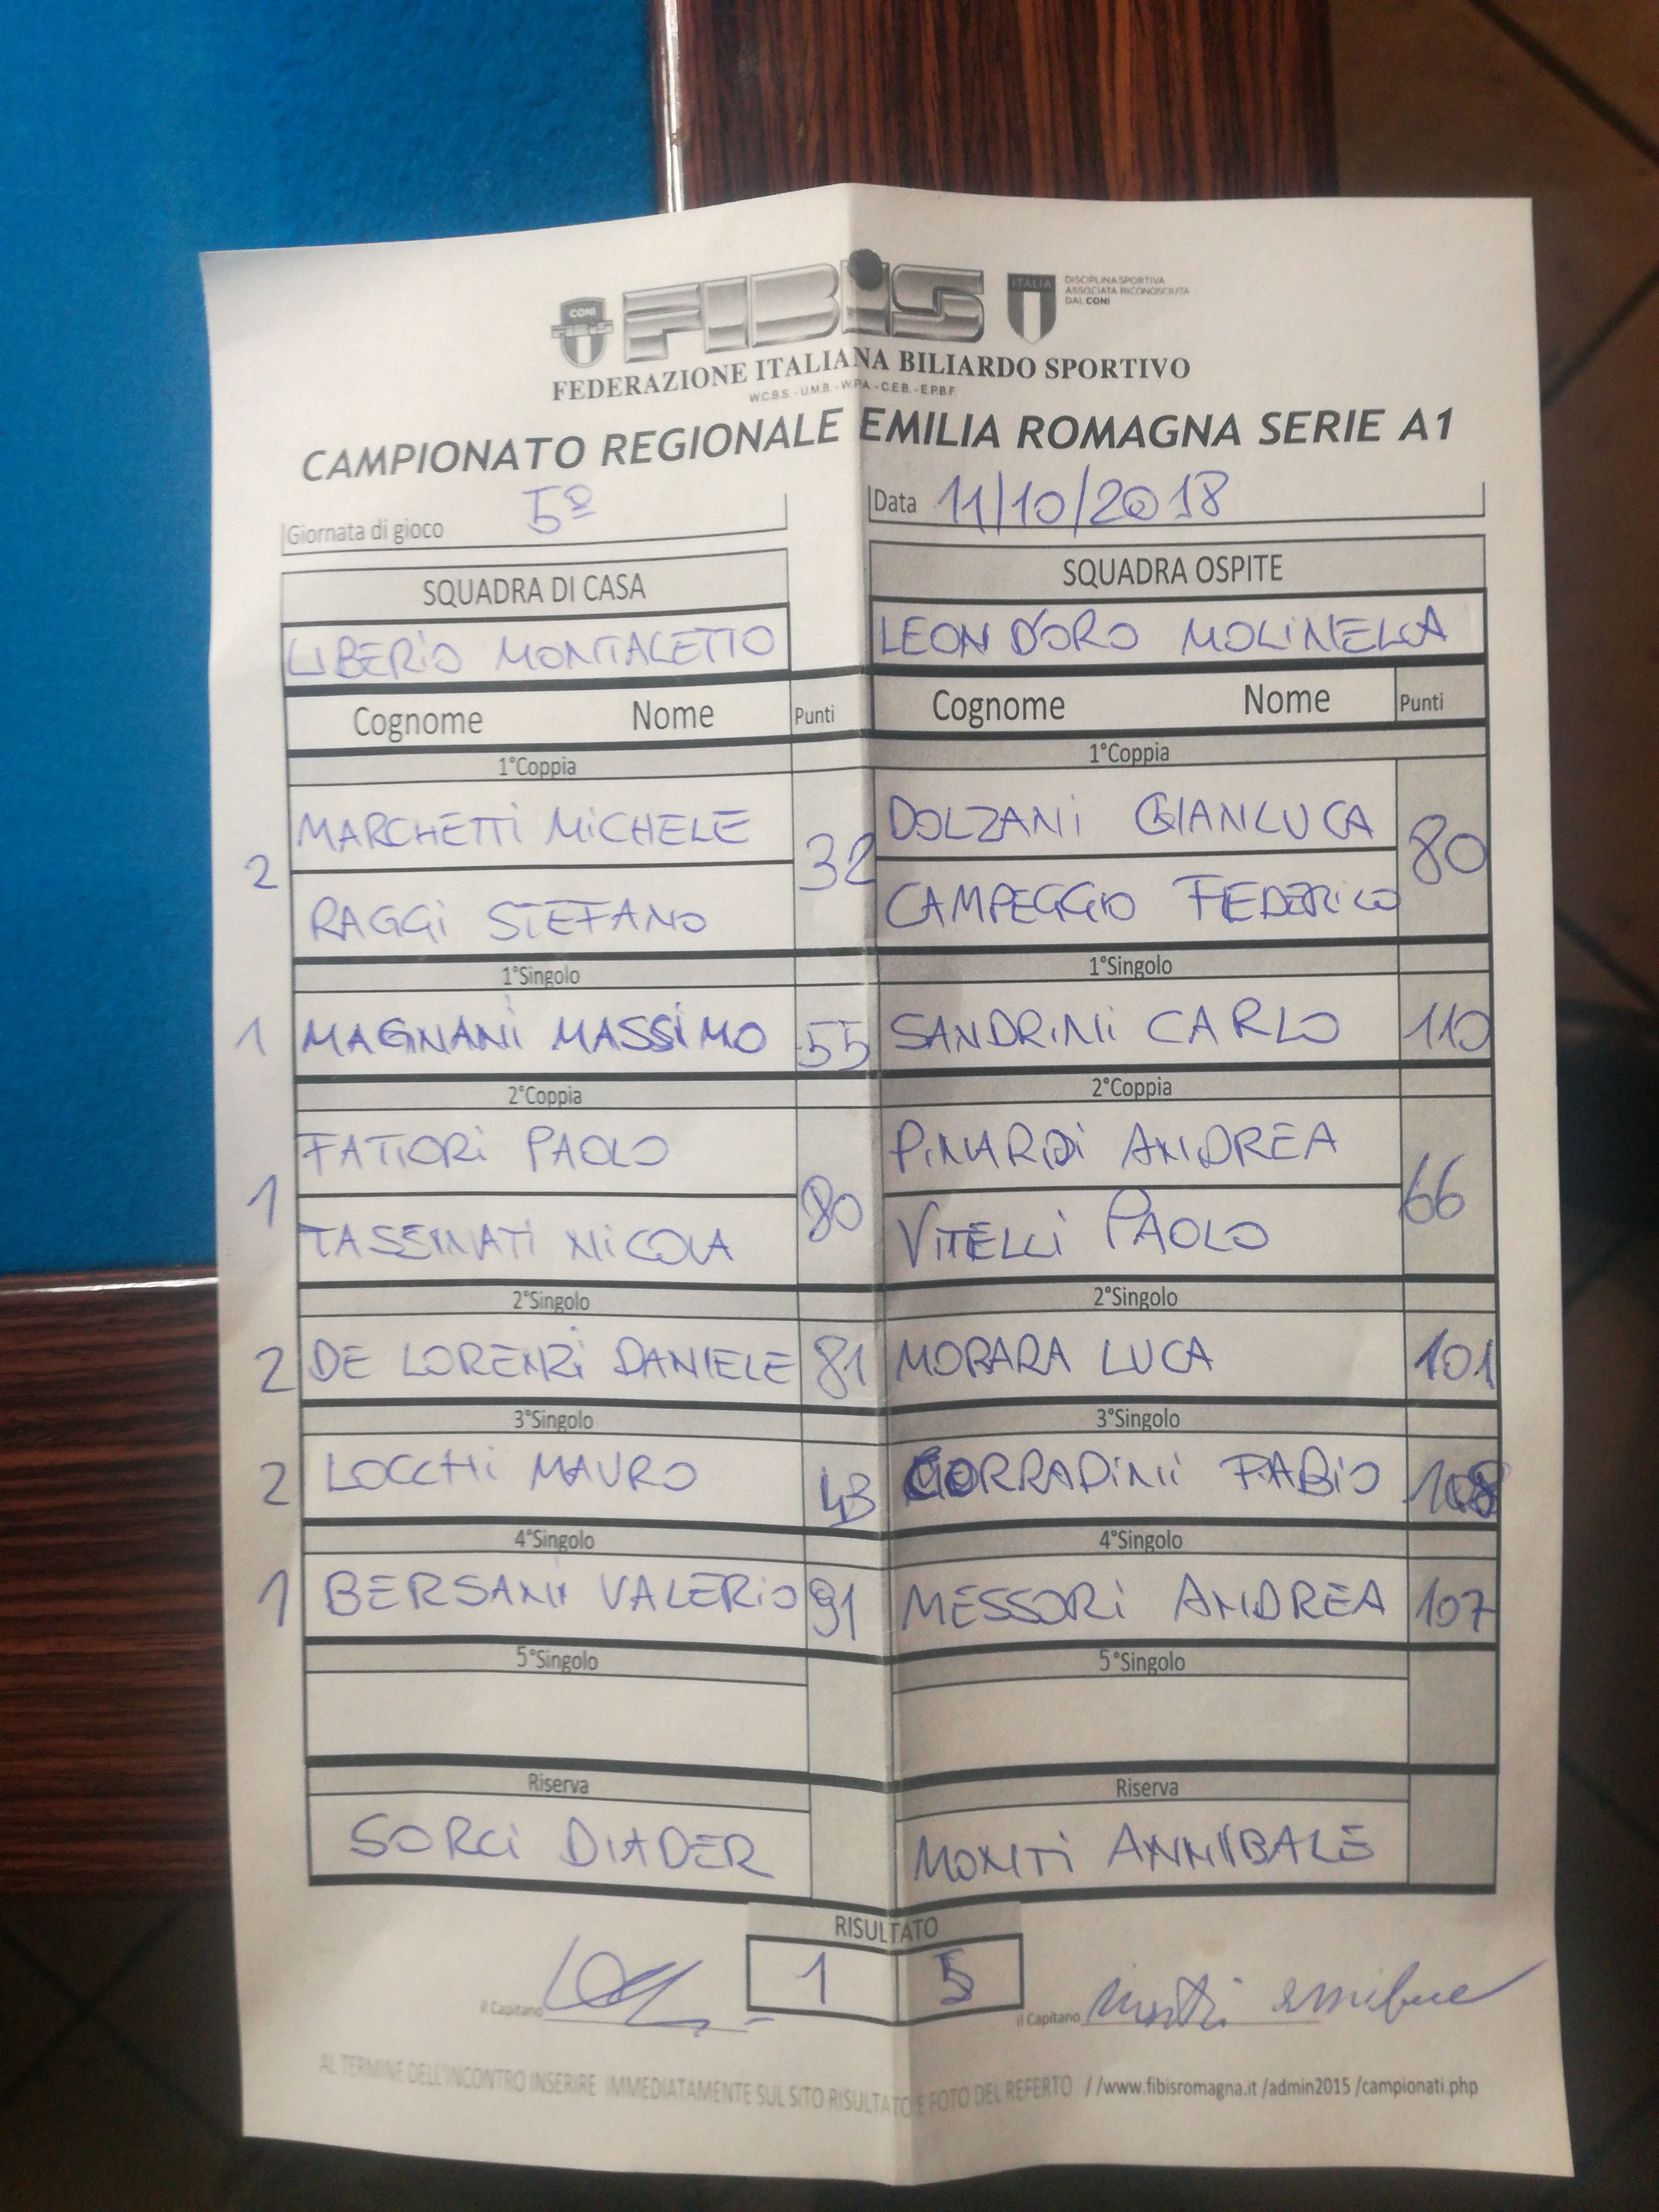 CONI
FIBIS
FIBiS
ITALIA
DISCIPLINA SPORTIVA
ASSOCIATA RICONOSCIUTA
DAL CONI
FEDERAZIONE ITALIANA BILIARDO SPORTIVO
W.C.B.S. - U.M.B. - W.P.A. - C.E.B. - E.P.B.F.
CAMPIONATO REGIONALE EMILIA ROMAGNA SERIE A1
Giornata di gioco 5º Data 11/10/2018
SQUADRA DI CASA SQUADRA OSPITE
LIBERIO MONTALETTO LEON D'ORO MOLINELLA
Cognome Nome Punti Cognome Nome Punti
1°Coppia 1°Coppia
MARCHETTI MICHELE DOLZANI GIANLUCA
2 32 80
RAGGI STEFANO CAMPEGGIO FEDERICO
1°Singolo 1°Singolo
1 MAGNANI MASSIMO 55 SANDRINI CARLO 110
2°Coppia 2°Coppia
FATTORI PAOLO PINARDI ANDREA
1 80 66
TASSINATI NICOLA VITELLI PAOLO
2°Singolo 2°Singolo
2 DE LORENZI DANIELE 81 MORARA LUCA 101
3°Singolo 3°Singolo
2 LOCCHI MAURO 43 CORRADINI FABIO 108
4°Singolo 4°Singolo
1 BERSANI VALERIO 91 MESSORI ANDREA 107
5°Singolo 5°Singolo
Riserva Riserva
SORCI DIADER MONTI ANNIBALE
RISULTATO
1 5
il Capitano il Capitano
AL TERMINE DELL'INCONTRO INSERIRE IMMEDIATAMENTE SUL SITO RISULTATO E FOTO DEL REFERTO //www.fibisromagna.it /admin2015 /campionati.php